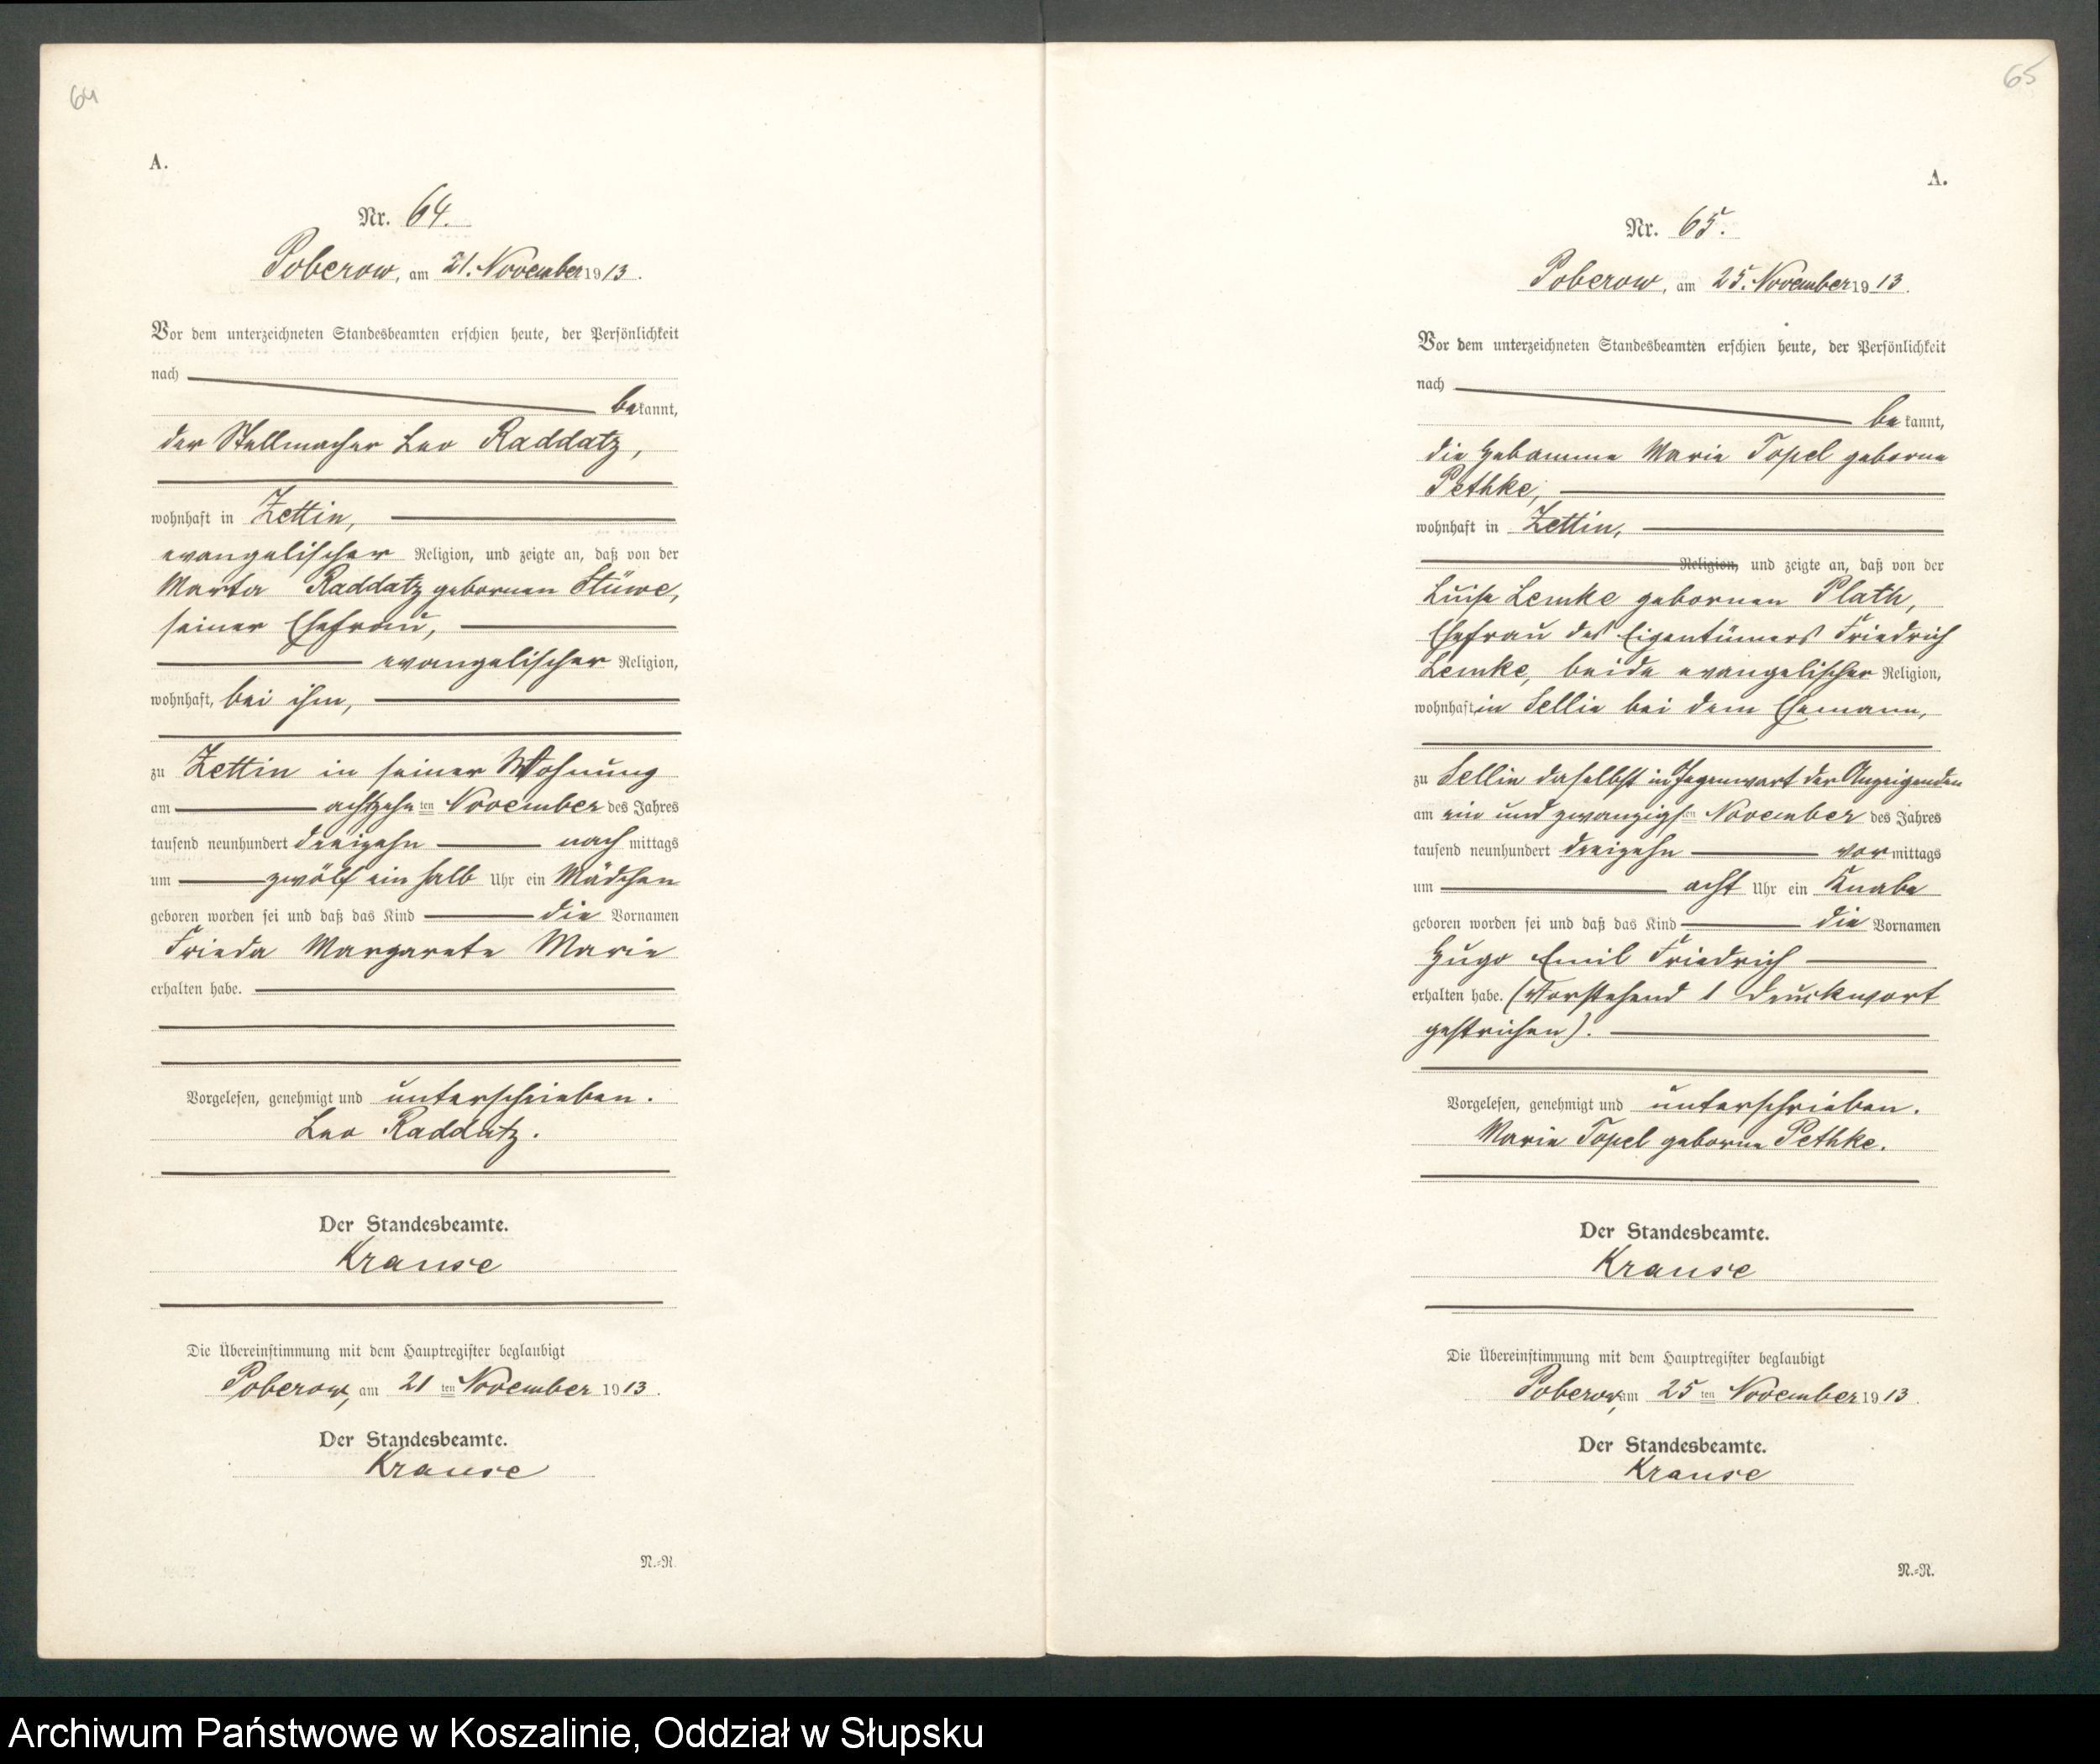 64
A.
Nr. 64.
Poberow, am 21. November 1913.
Vor dem unterzeichneten Standesbeamten erschien heute, der Persönlichkeit
nach
bekannt,
der Stellmacher Leo Raddatz,
wohnhaft in Zettin,
evangelischer Religion, und zeigte an, daß von der
Marta Raddatz gebornen Stüwe,
seiner Ehefrau,
evangelischer Religion,
wohnhaft, bei ihm,
zu Zettin in seiner Wohnung
am achtzehnten November des Jahres
tausend neunhundert dreizehn nachmittags
um zwölf ein halb Uhr ein Mädchen
geboren worden sei und daß das Kind die Vornamen
Frieda Margarete Marie
erhalten habe.
Vorgelesen, genehmigt und unterschrieben.
Leo Raddatz.
Der Standesbeamte.
Krause
Die Übereinstimmung mit dem Hauptregister beglaubigt
Poberow, am 21ten November 1913.
Der Standesbeamte.
Krause
N.-R.
65
A.
Nr. 65.
Poberow, am 25. November 1913.
Vor dem unterzeichneten Standesbeamten erschien heute, der Persönlichkeit
nach
bekannt,
die Hebamme Marie Topel geborne
Pethke,
wohnhaft in Zettin,
Religion, und zeigte an, daß von der
Luise Lemke gebornen Plath,
Ehefrau des Eigentümers Friedrich
Lemke, beide evangelischer Religion,
wohnhaft in Sellin bei dem Ehemann,
zu Sellin daselbst in Gegenwart der Anzeigenden
am ein und zwanzigsten November des Jahres
tausend neunhundert dreizehn vormittags
um acht Uhr ein Knabe
geboren worden sei und daß das Kind die Vornamen
Hugo Emil Friedrich
erhalten habe. (Vorstehend 1 Druckwort
gestrichen).
Vorgelesen, genehmigt und unterschrieben.
Marie Topel geborne Pethke.
Der Standesbeamte.
Krause
Die Übereinstimmung mit dem Hauptregister beglaubigt
Poberow, am 25ten November 1913.
Der Standesbeamte.
Krause
N.-R.
Archiwum Państwowe w Koszalinie, Oddział w Słupsku